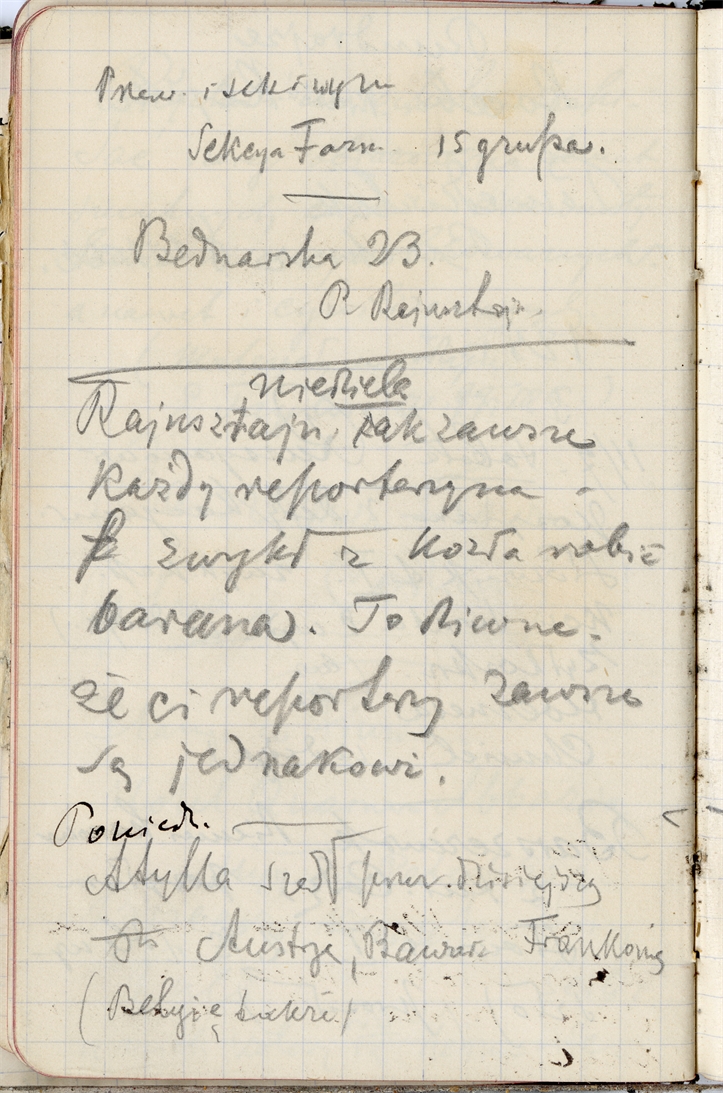 Sekcya Farm 15 grupa.
Bednarska 23.
P. Rejnsztajn.
niedziela
Rajnsztajn, jak zawsze
każdy reporterzyna -
zwykł z kozła robić
barana. To dziwne.
że ci reporterzy zawsze
są jednakowi.
Poniedz.
Atylla szedł przez dzisiejszą
Austrję, Bawarię Frankonię
(Belgię także)